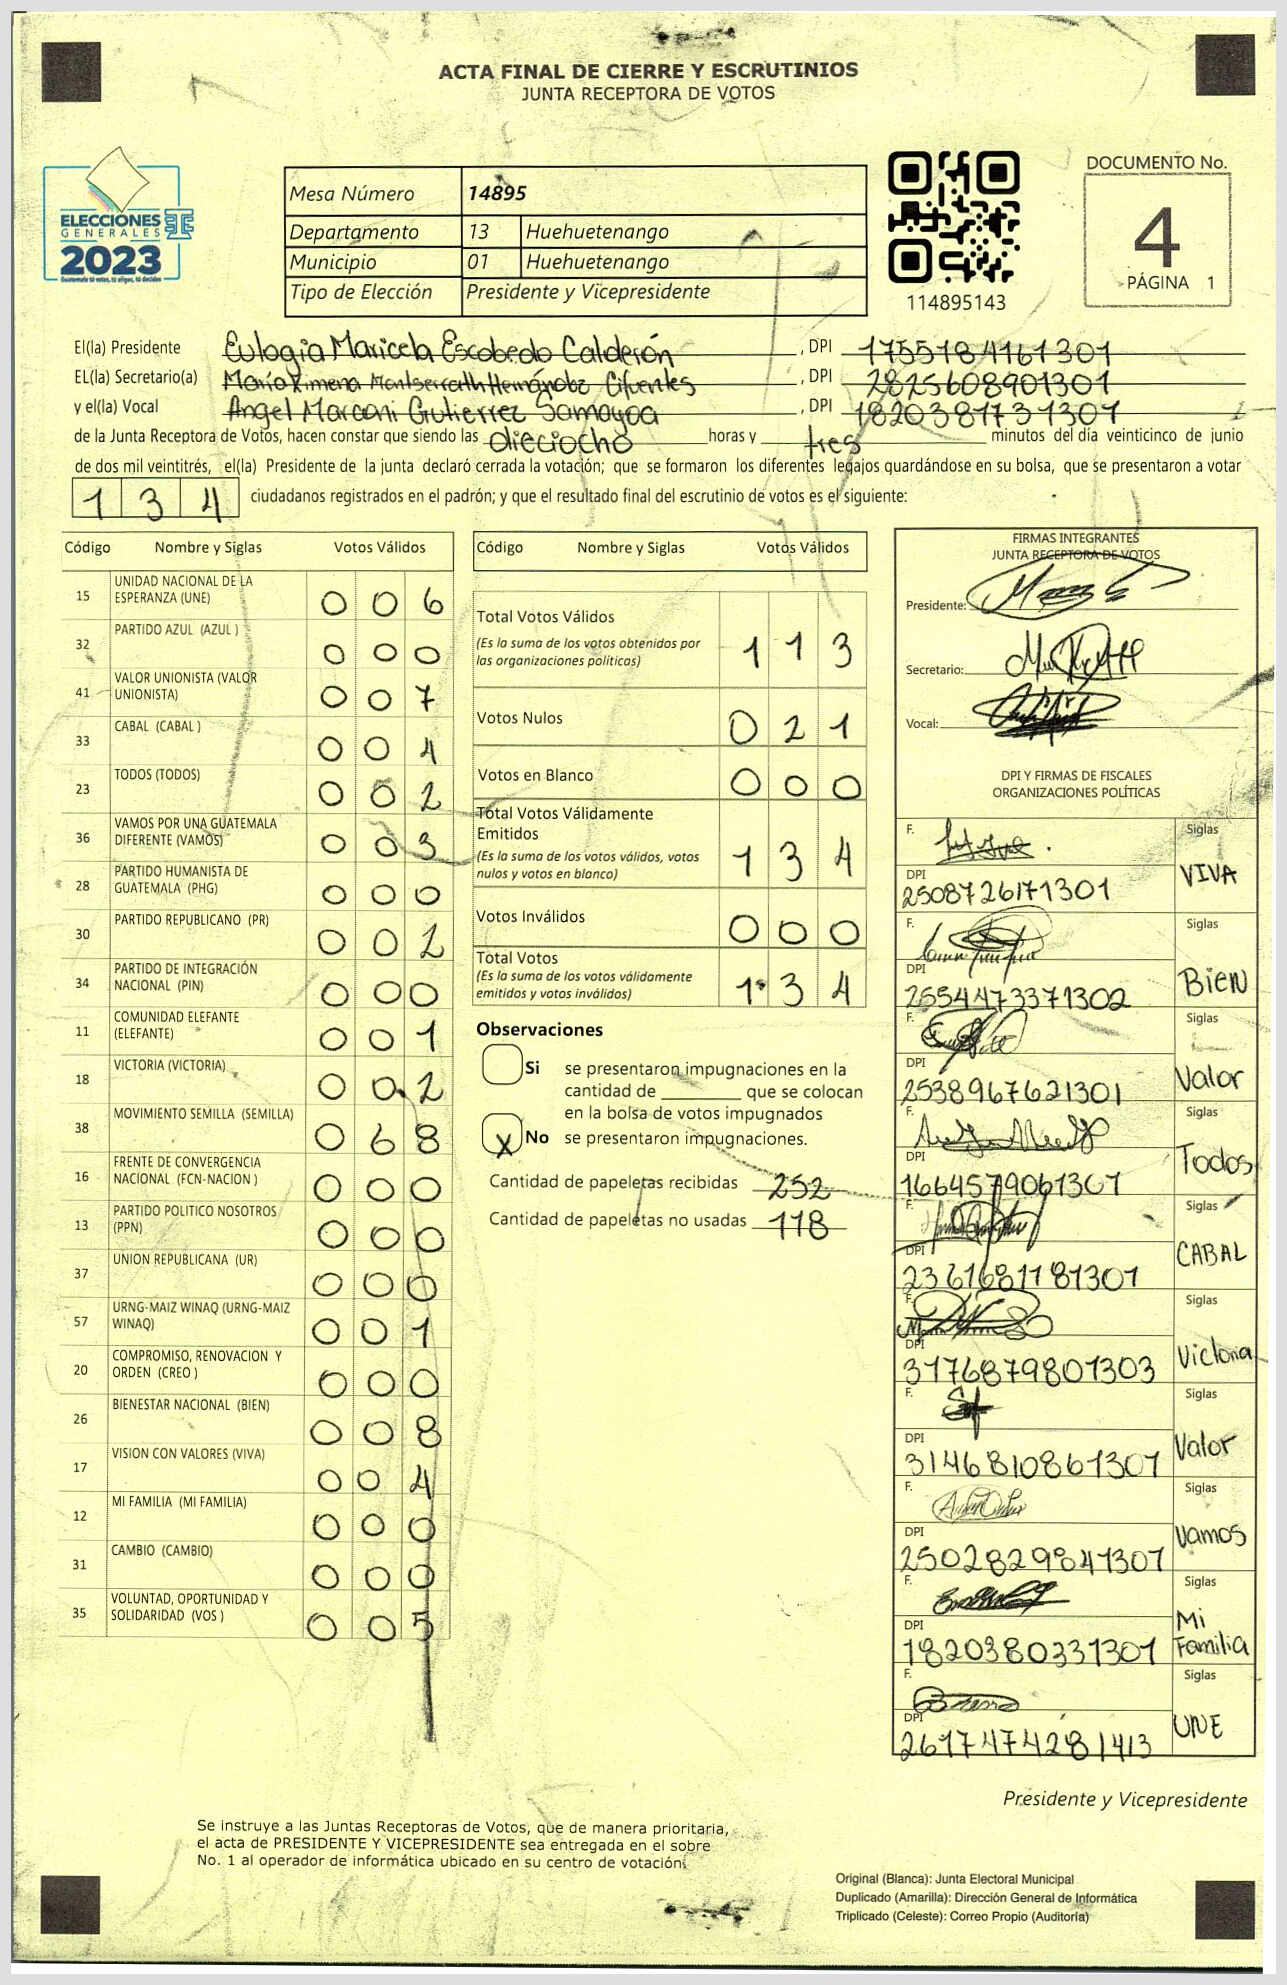 ACTA FINAL DE CIERRE Y ESCRUTINIOS
JUNTA RECEPTORA DE VOTOS
ELECCIONES
GENERALES
2023
Mesa Número 14895
Departamento 13 Huehuetenango
Municipio 01 Huehuetenango
Tipo de Elección Presidente y Vicepresidente
114895143
DOCUMENTO No.
4
PÁGINA 1
El(la) Presidente Eulogia Maricela Escobedo Calderón, DPI 1755184161301
EL(la) Secretario(a) María Ximena Montserrath Hernández Cifuentes, DPI 2825608901301
y el(la) Vocal Angel Marconi Gutierrez Samayoa, DPI 1820381731301
de la Junta Receptora de Votos, hacen constar que siendo las dieciocho horas y tres minutos del día veinticinco de junio
de dos mil veintitrés, el(la) Presidente de la junta declaró cerrada la votación; que se formaron los diferentes legajos quardándose en su bolsa, que se presentaron a votar
134 ciudadanos registrados en el padrón; y que el resultado final del escrutinio de votos es el siguiente:
Código Nombre y Siglas Votos Válidos
15 UNIDAD NACIONAL DE LA ESPERANZA (UNE) 0 0 6
32 PARTIDO AZUL (AZUL ) 0 0 0
41 VALOR UNIONISTA (VALOR UNIONISTA) 0 0 7
33 CABAL (CABAL ) 0 0 4
23 TODOS (TODOS) 0 0 2
36 VAMOS POR UNA GUATEMALA DIFERENTE (VAMOS) 0 0 3
28 PARTIDO HUMANISTA DE GUATEMALA (PHG) 0 0 0
30 PARTIDO REPUBLICANO (PR) 0 0 2
34 PARTIDO DE INTEGRACIÓN NACIONAL (PIN) 0 0 0
11 COMUNIDAD ELEFANTE (ELEFANTE) 0 0 1
18 VICTORIA (VICTORIA) 0 0 2
38 MOVIMIENTO SEMILLA (SEMILLA) 0 6 8
16 FRENTE DE CONVERGENCIA NACIONAL (FCN-NACION ) 0 0 0
13 PARTIDO POLITICO NOSOTROS (PPN) 0 0 0
37 UNION REPUBLICANA (UR) 0 0 0
57 URNG-MAIZ WINAQ (URNG-MAIZ WINAQ) 0 0 1
20 COMPROMISO, RENOVACION Y ORDEN (CREO ) 0 0 0
26 BIENESTAR NACIONAL (BIEN) 0 0 8
17 VISION CON VALORES (VIVA) 0 0 4
12 MI FAMILIA (MI FAMILIA) 0 0 0
31 CAMBIO (CAMBIO) 0 0 0
35 VOLUNTAD, OPORTUNIDAD Y SOLIDARIDAD (VOS ) 0 0 5
Código Nombre y Siglas Votos Válidos
Total Votos Válidos 1 1 3
(Es la suma de los votos obtenidos por
las organizaciones políticas)
Votos Nulos 0 2 1
Votos en Blanco 0 0 0
Total Votos Válidamente
Emitidos 1 3 4
(Es la suma de los votos válidos, votos
nulos y votos en blanco)
Votos Inválidos 0 0 0
Total Votos 1 3 4
(Es la suma de los votos válidamente
emitidos y votos inválidos)
Observaciones
Si se presentaron impugnaciones en la
cantidad de ________ que se colocan
en la bolsa de votos impugnados
X No se presentaron impugnaciones.
Cantidad de papeletas recibidas 252
Cantidad de papeletas no usadas 118
FIRMAS INTEGRANTES
JUNTA RECEPTORA DE VOTOS
Presidente:
Secretario:
Vocal:
DPI Y FIRMAS DE FISCALES
ORGANIZACIONES POLÍTICAS
F. Siglas
DPI 2508726171301 VIVA
F. Siglas
DPI 2554473371302 Bien
F. Siglas
DPI 2538967621301 Valor
F. Siglas
DPI 1664579061301 Todos
F. Siglas
DPI 2361681181301 CABAL
F. Siglas
DPI 3176879801303 Victoria
F. Siglas
DPI 3146810861301 Valor
F. Siglas
DPI 2502829841301 Vamos
F. Siglas
DPI 1820380331301 Mi Familia
F. Siglas
DPI 2617474281413 UNE
Presidente y Vicepresidente
Se instruye a las Juntas Receptoras de Votos, que de manera prioritaria,
el acta de PRESIDENTE Y VICEPRESIDENTE sea entregada en el sobre
No. 1 al operador de informática ubicado en su centro de votación.
Original (Blanca): Junta Electoral Municipal
Duplicado (Amarilla): Dirección General de Informática
Triplicado (Celeste): Correo Propio (Auditoría)